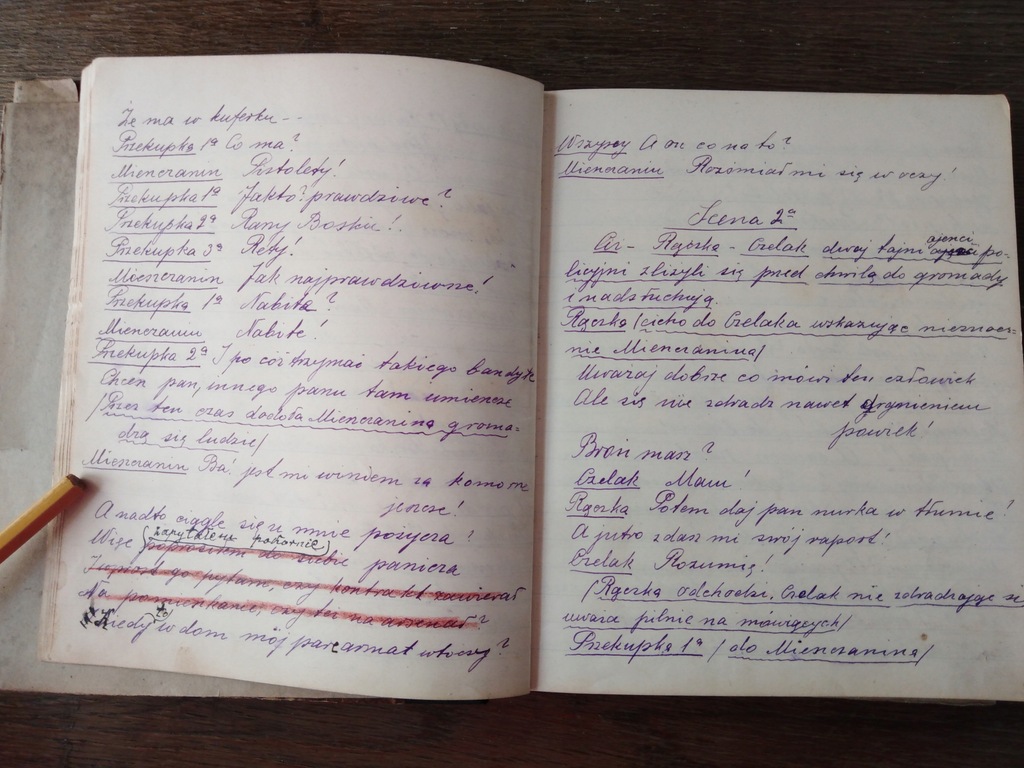 Że ma w kuferku - -
Przekupka 1ª Co ma?
Mieszczanin Pistolety!
Przekupka 1ª Jakto? prawdziwe?
Przekupka 2ª Rany Boskie!
Przekupka 3ª Rety!
Mieszczanin Jak najprawdziwsze!
Przekupka 1ª Nabite?
Mieszczanin Nabite!
Przekupka 2ª I po cóż trzymać takiego bandytę
Chceń pan, innego panu tam umieszcze
/Przez ten czas dookoła Mieszczanina groma=
dzą się ludzie/
Mieszczanin Ba! jest mi winien za komorne
jeszcze!
A nadto ciągle się u mnie pożycza?
zapytałem pozornie
Więc poprosiłem do siebie panicza
I uprost go pytam, czy kontrakt zawierał
Na pomieszkanie, czy też na arsenał?
Kiedy to w dom mój parę armat wtoczy?
Wszyscy A on co na to?
Mieszczanin Roześmiał mi się w oczy!
Scena 2ª
Ciż - Rączka - Czelak dwaj tajni ajenci po-
licyjni zbliżyli się przed chwilą do gromady
i nadsłuchują.
Rączka /cicho do Czelaka wskazując nieznacz-
nie Mieszczanina/
Uważaj dobrze co mówi ten człowiek
Ale się nie zdradź nawet drgnieniem
powiek!
Broń masz?
Czelak Mam!
Rączka Potem daj pan nurka w tłumie!
A jutro zdasz mi swój raport!
Czelak Rozumię!
/Rączka odchodzi, Czelak nie zdradzając się
uważa pilnie na mówiących/
Przekupka 1ª /do Mieszczanina/